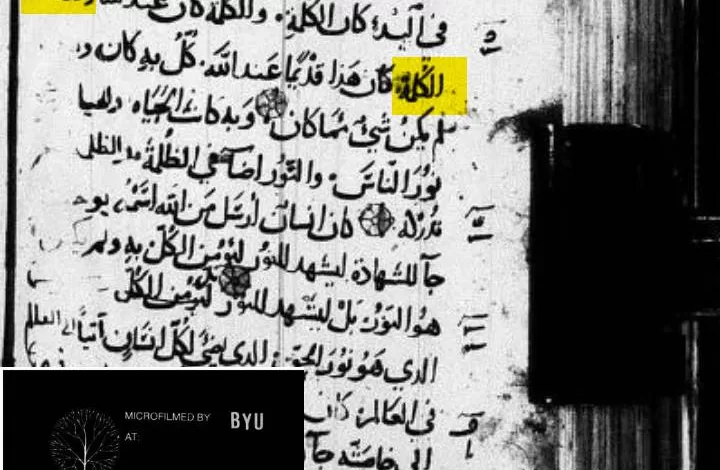 في البدء كان الكلمة. والكلمة كان عند
الكلمة كان هذا قديمًا عند الله. كلّ به كان
لم يكن شيءٌ ممّا كان وبه كانت الحياه
نورَ الناسَ. والنّور اضا في الظلمة
تُدركه كان انسان أرسل من الله اسمه يوحـ
جا للشهادة ليشهد للنور ليؤمن الكلّ به ولم
هو النور بل ليشهد للنور ليؤمن الكلّ
الذي هو نور الحق الذي يضي لكل انسان آتياً الى العالم
في العالم كان
الى خاصّته جا
MICROFILMED BY BYU
AT: